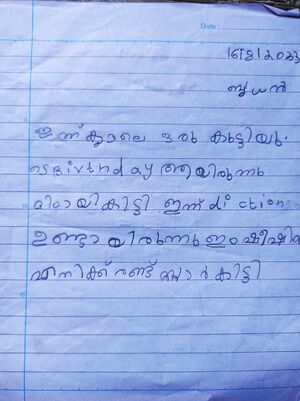 Date :
16/8/2023
ബുധൻ
ഇന്ന് ക്ലാസിലെ ഒരു കുട്ടിയു
ടെ Birthday ആയിരുന്നു
മിഠായി കിട്ടി ഇന്ന് diction
ഉണ്ടായിരുന്നു ഇംഗ്ലീഷി
എനിക്ക് രണ്ട് സ്റ്റാർ കിട്ടി